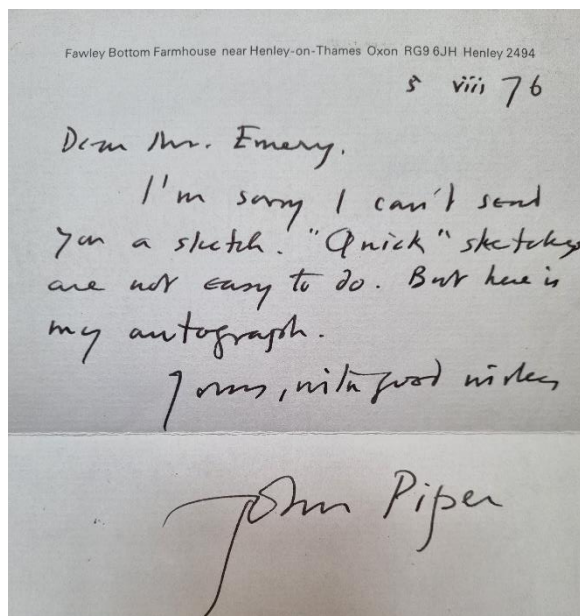 Fawley Bottom Farmhouse near Henley-on-Thames Oxon RG9 6JH Henley 2494
5 viii 76
Dear Mr. Emery.
I'm sorry I can't send
you a sketch. "Quick" sketches
are not easy to do. But here is
my autograph.
Yours, with good wishes
John Piper